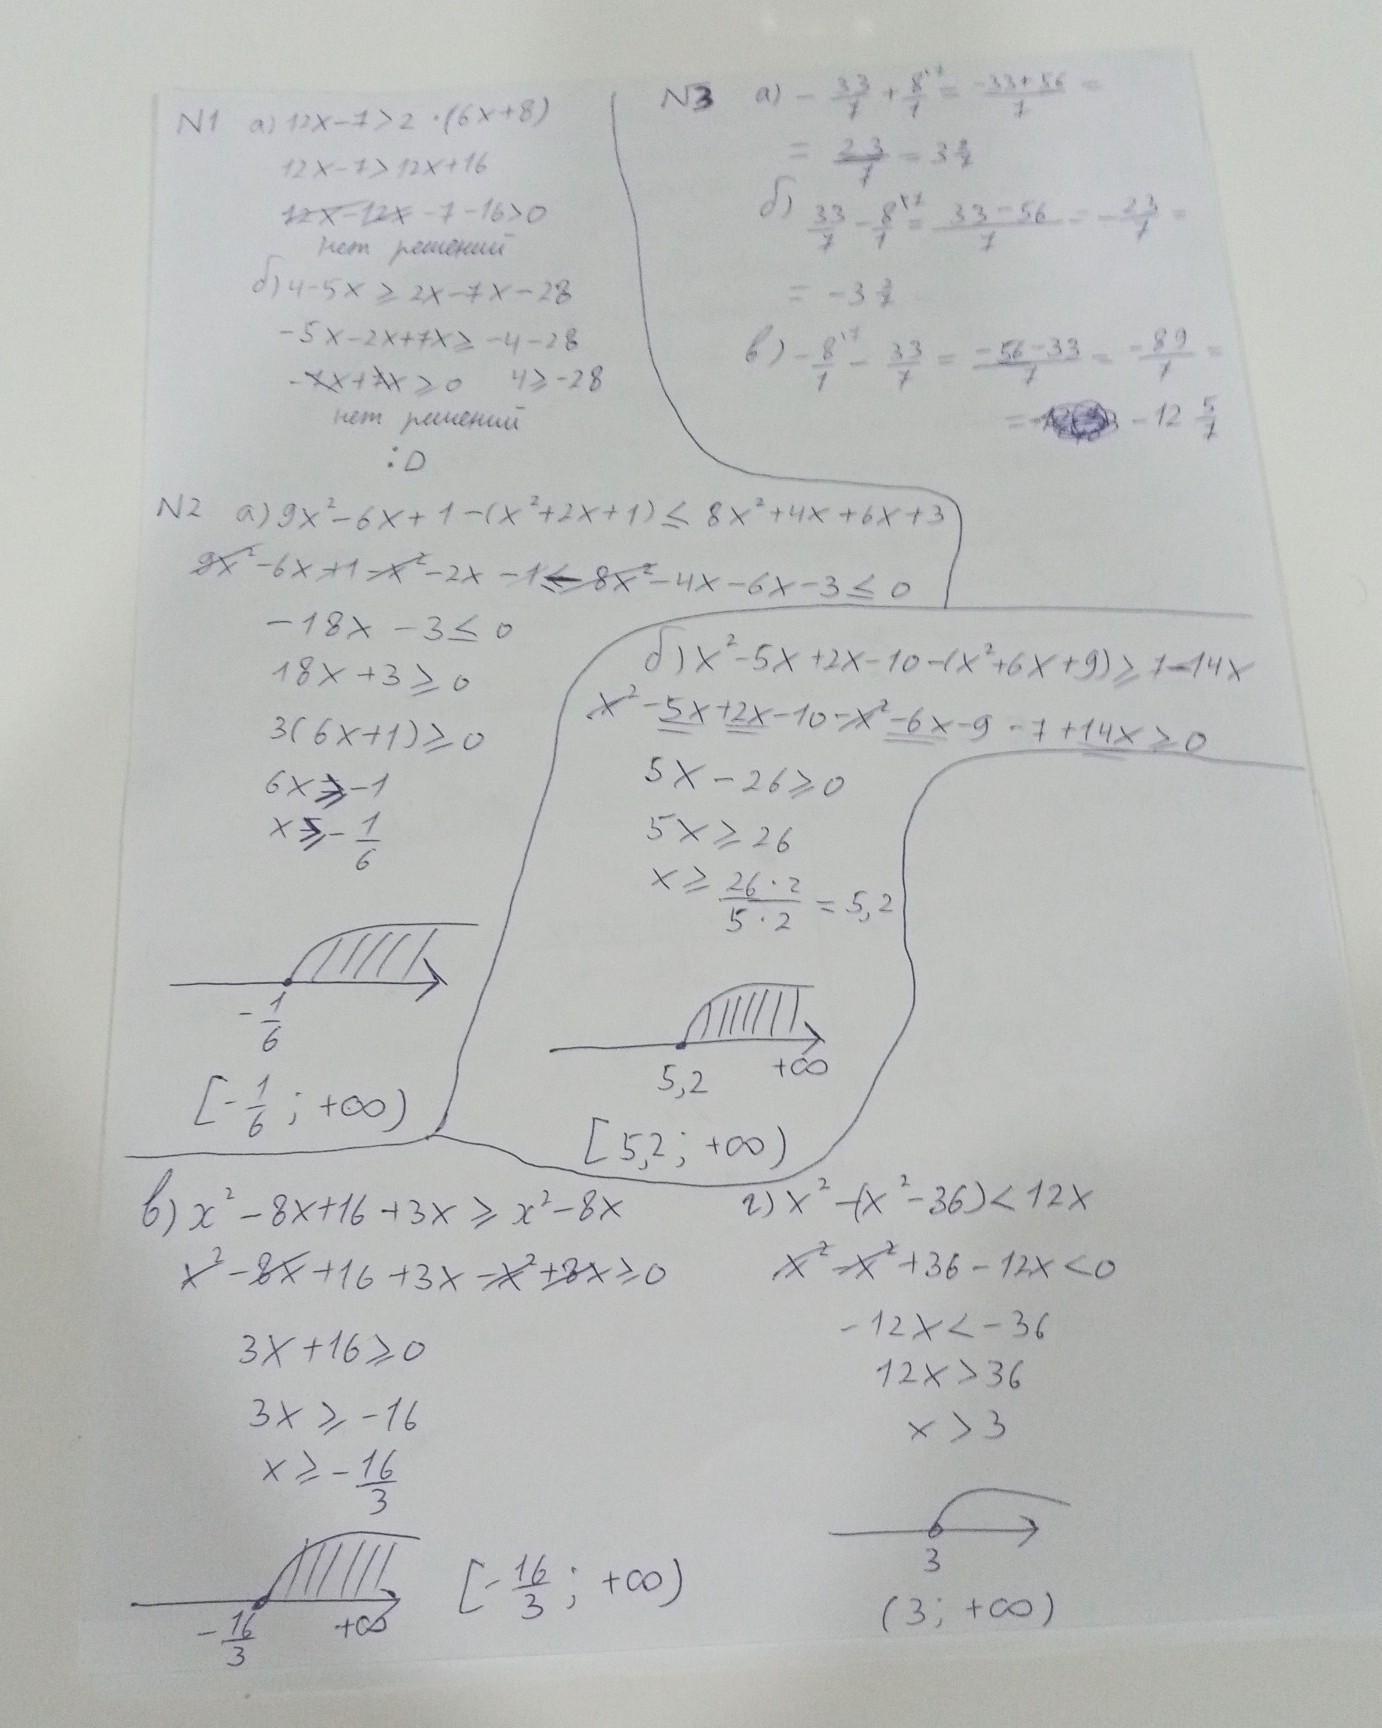 N1 а) 12x-7>2·(6x+8)
12x-7>12x+16
12x-12x-7-16>0
нет решений
б) 4-5x ≥ 2x-7x-28
-5x-2x+7x ≥ -4-28
-7x+7x ≥ 0 4 ≥ -28
нет решений
:D
N3 а) - 33/7 + 8/1 ·7 = -33+56/7 =
= 23/7 = 3 2/7
б) 33/7 - 8/1 ·7 = 33-56/7 = - 23/7 =
= -3 2/7
в) - 8/1 ·7 - 33/7 = -56-33/7 = -89/7 =
= -12 5/7
N2 а) 9x²-6x+1-(x²+2x+1) ≤ 8x²+4x+6x+3
9x²-6x+1-x²-2x-1-8x²-4x-6x-3 ≤ 0
-18x-3 ≤ 0
18x+3 ≥ 0
3(6x+1) ≥ 0
6x ≥ -1
x ≥ - 1/6
- 1/6
[- 1/6 ; +∞)
б) x²-5x+2x-10-(x²+6x+9) ≥ 7-14x
x²-5x+2x-10-x²-6x-9-7+14x ≥ 0
5x-26 ≥ 0
5x ≥ 26
x ≥ 26·2/5·2 = 5,2
5,2 +∞
[5,2; +∞)
в) x²-8x+16+3x ≥ x²-8x
x²-8x+16+3x-x²+8x ≥ 0
3x+16 ≥ 0
3x ≥ -16
x ≥ - 16/3
- 16/3 +∞
[- 16/3 ; +∞)
г) x²-(x²-36)<12x
x²-x²+36-12x<0
-12x<-36
12x>36
x>3
3
(3; +∞)